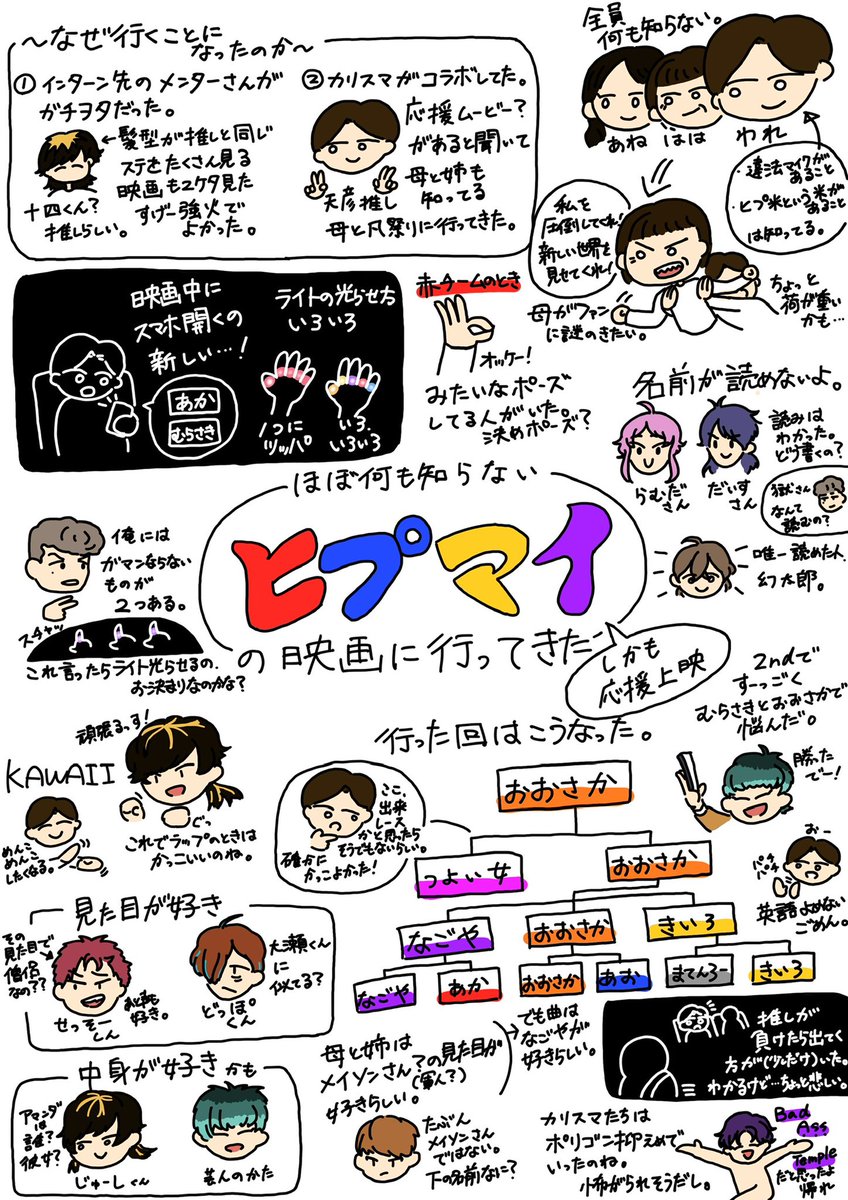 ～なぜ行くことに
なったのか～
① インターン先のメンターさんが
ガチヲタだった。
←髪型が推しと同じ
ステをたくさん見る
映画も2ケタ見た
すげー強火で
よかった。
十四くん？
推しらしい。
② カリスマがコラボしてた。
応援ムービー？
があると聞いて
母と姉も
知ってる
天彦推し
母と凡祭りに行ってきた。
全員
何も知らない。
あね
はは
われ
・違法マイクが
あること
・ヒプ米という米が
あること
は知ってる。
私を
圧倒してくれ！
新しい世界を
見せてくれ！
母がファン
に謎のきたい。
ちょっと
荷が重い
かも…
映画中に
スマホ開くの
新しい…！
あか
むらさき
ライトの光らせ方
いろいろ
1つに
ツッパ
いろ、
いろいろ
赤チームのとき
オッケー！
みたいなポーズ
してる人がいた。
決めポーズ？
名前が読めないよ。
らむだ
さん
だいす
さん
読みは
わかった。
どう書くの？
獄さん
なんて
読むの？
唯一読めた人
幻太郎。
ほぼ何も知らない
ヒプマイ
の映画に行ってきた
しかも
応援上映
俺には
ガマンならない
ものが
2つある。
スチャッ
これ言ったらライト光らせるの、
お決まりなのかな？
2ndで
すーっごく
むらさきとおおさかで
悩んだ。
頑張るっす！
KAWAII
めんこ
めんこ
したくなる。
ぐっ
これでラップのときは
かっこいいのね。
行った回はこうなった。
ここ、
出来
レース
かと思ったら
そうでもないらしい。
確かに
かっこよかった！
おおさか
つよい女
おおさか
なごや
おおさか
きいろ
なごや
あか
おおさか
あお
まてんろー
きいろ
勝った
でー！
おー
パチ
パチ
英語よめない
ごめん。
見た目が好き
その
見た目で
僧侶
なの？？
せっそー
くん
お声も
好き。
大瀬くん
に
似てる？
どっぽ
くん
中身が好きかも
アマンダ
は
誰？
彼女？
じゅーしくん
芸人のかた
母と姉は
メイソンさん？の見た目が
(軍人？)
好きらしい。
でも曲は
なごやが
好きらしい。
たぶん
メイソンさん
ではない。
下の名前なに？
推しが
負けたら出てく
方が(少しだけ)いた。
わかるけど…ちょっと悲しい。
カリスマたちは
ポリゴン抑えめで
いったのね。
怖がられそうだし。
Bad
Ass
Temple
だと思ったよ
帰れ